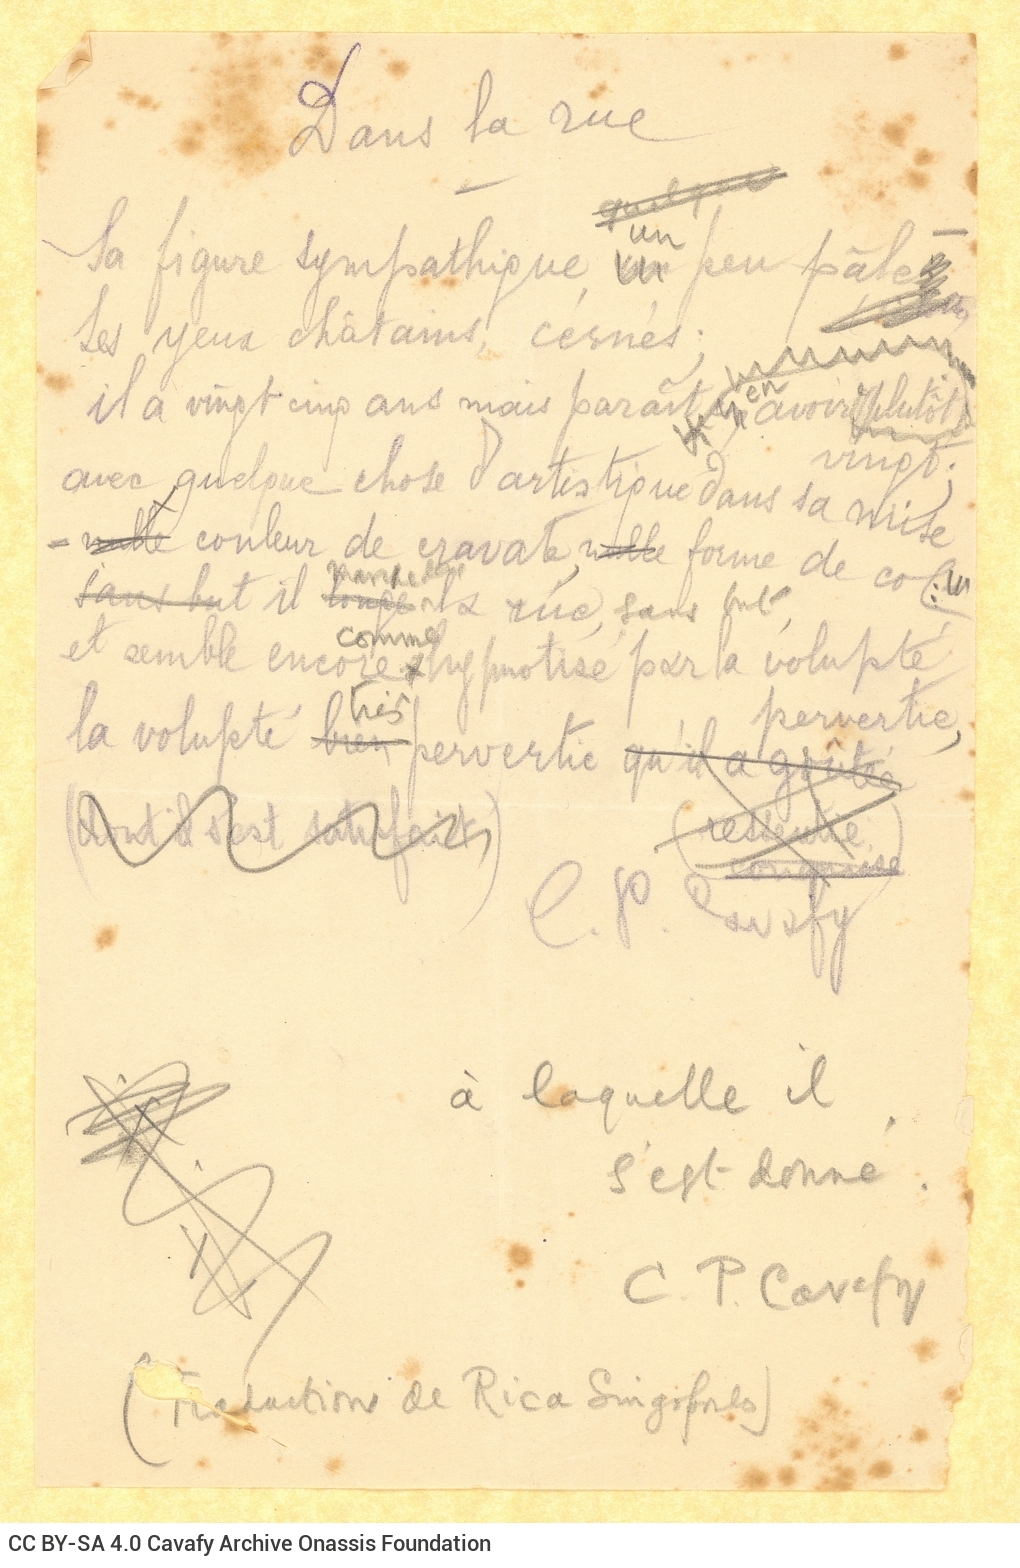 Dans la rue
quelque
un
Sa figure sympathique, un peu pâle
Ses yeux châtains, cernés;
il a vingt cinq ans mais paraît en avoir plutôt
vingt;
avec quelque chose d'artistique dans sa mise
- nulle couleur de cravate, nulle forme de col
marche dans
sans but il longe la rue, sans but,
comme
et semble encore hypnotisé par la volupté
très
pervertie,
la volupté bien pervertie qu'il a goûtée
(dont il s'est satisfait) (ressentie
C. P. Cavafy
à laquelle il
s'est donné.
C. P. Cavafy
(Traduction de Rica Singopoulo)
CC BY-SA 4.0 Cavafy Archive Onassis Foundation